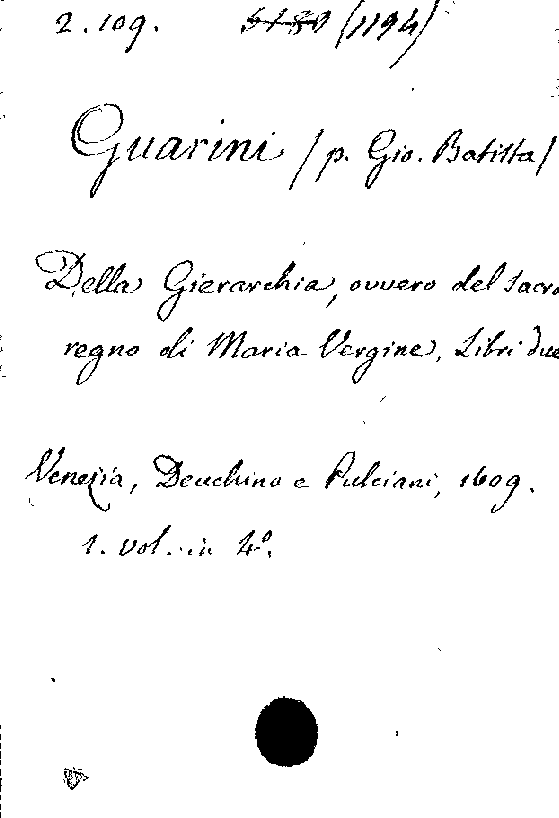 2. 109. 5780 (1194)
Guarini / p. Gio. Batista /
Della Gierarchia, ovvero del sacro
regno di Maria Vergine, Libri due
Venezia, Deuchino e Pulciani, 1609.
1. vol. in 4º.